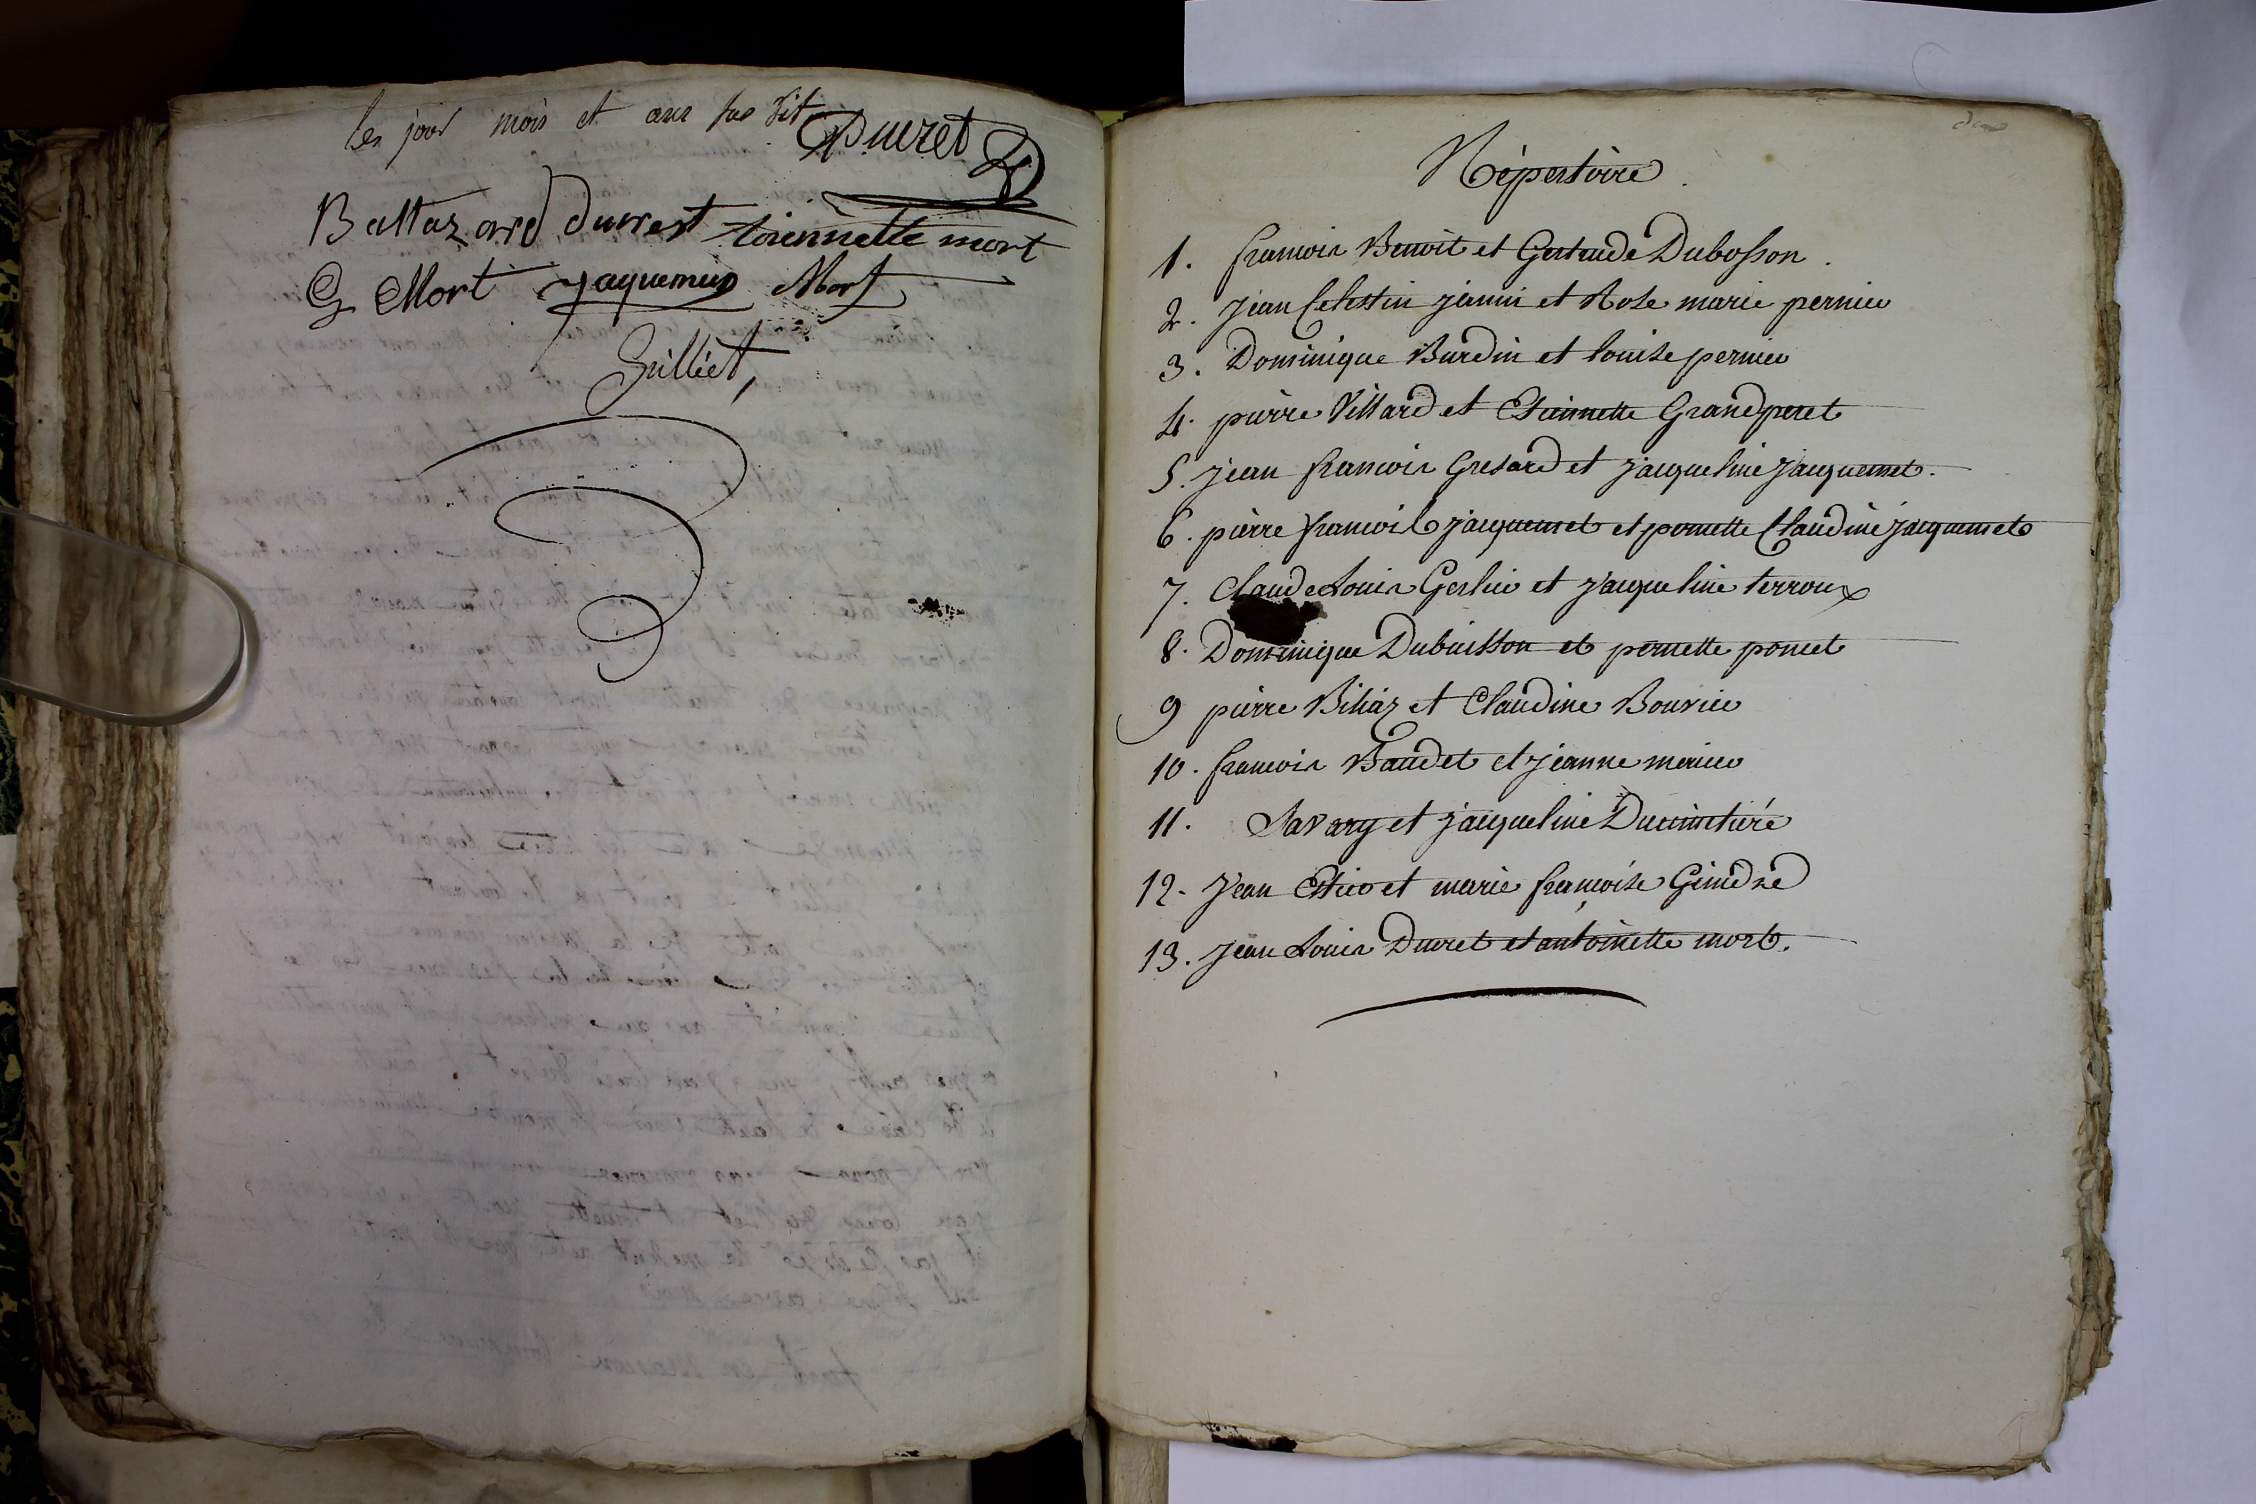 les jour mois et ans sus dit Duvret
Baltazard duvrest toiennette mort
G Mort Jaquemes Mort
Guilliet,
Répertoire
1. francois Benoit et Gertrude Dubosson.
2. jean Celestin jánin et Rose marie pernier
3. Dominique Burdin et louise pernier
4. pierre Villard et Etiennette Grandperet
5. jean francois Gresard et jacqueline Jacquemet.
6. pierre francois jacquemet et pernette Claudine jacquemet
7. Claude Louis Gerlier et jacqueline terroux
8. Dominique Dubuisson et pernette poncet
9 pierre Billiaz et Claudine Bouvier
10. francois Baudet et jeanne merier
11. Savary et jacqueline Ducimetiére
12. Jean Etier et marie françoise Gindre
13. jean Louis Duvret et antoinette mort.